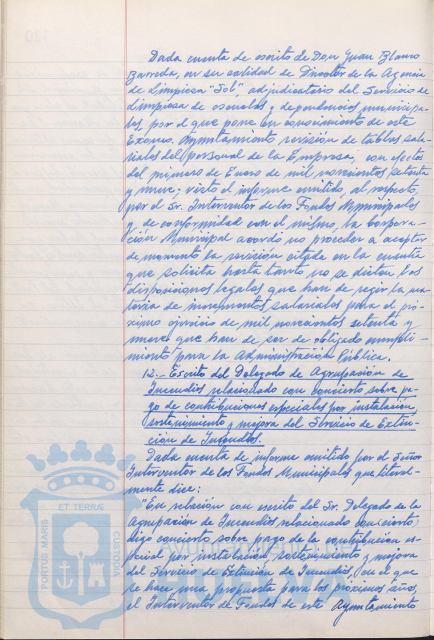 Dada cuenta de escrito de Don Juan Blanco
Barreda, en su calidad de Director de la Agencia
de Limpieza "Sol" adjudicatario del Servicio de
Limpieza de escuelas y dependencias municipa-
les, por el que pone en conocimiento de este
Excmo. Ayuntamiento revisión de tablas sala-
riales del personal de la Empresa, con efectos
del primero de Enero de mil novecientos setenta
y nueve; visto el informe emitido, al respecto,
por el Sr. Interventor de los Fondos Municipales
y de conformidad con el mismo, la Corpora-
ción Municipal acordó no proceder a aceptar
de momento la revisión citada en la cuantía
que solicita hasta tanto no se dicten las
disposiciones legales que han de regir la ma-
teria de incrementos salariales para el pró-
ximo ejercicio de mil novecientos setenta y
nueve que han de ser de obligado cumpli-
miento para la Administración Pública.
12.- Escrito del Delegado de Agrupación de
Incendios relacionado con concierto sobre pa-
go de contribuciones especiales por instalación,
sostenimiento y mejora del Servicio de Extin-
ción de Incendios.
Dada cuenta de informe emitido por el Señor
Interventor de los Fondos Municipales que literal-
mente dice:
"En relación con escrito del Sr. Delegado de la
Agrupación de Incendios relacionado con cierto;
digo concierto sobre pago de la contribución es-
pecial por instalación, sostenimiento y mejora
del Servicio de Extinción de Incendios, en el que
se hace una propuesta para los próximos años,
el Interventor de Fondos de este Ayuntamiento
PORTUS MARIS
ET TERRÆ
CUSTODIA